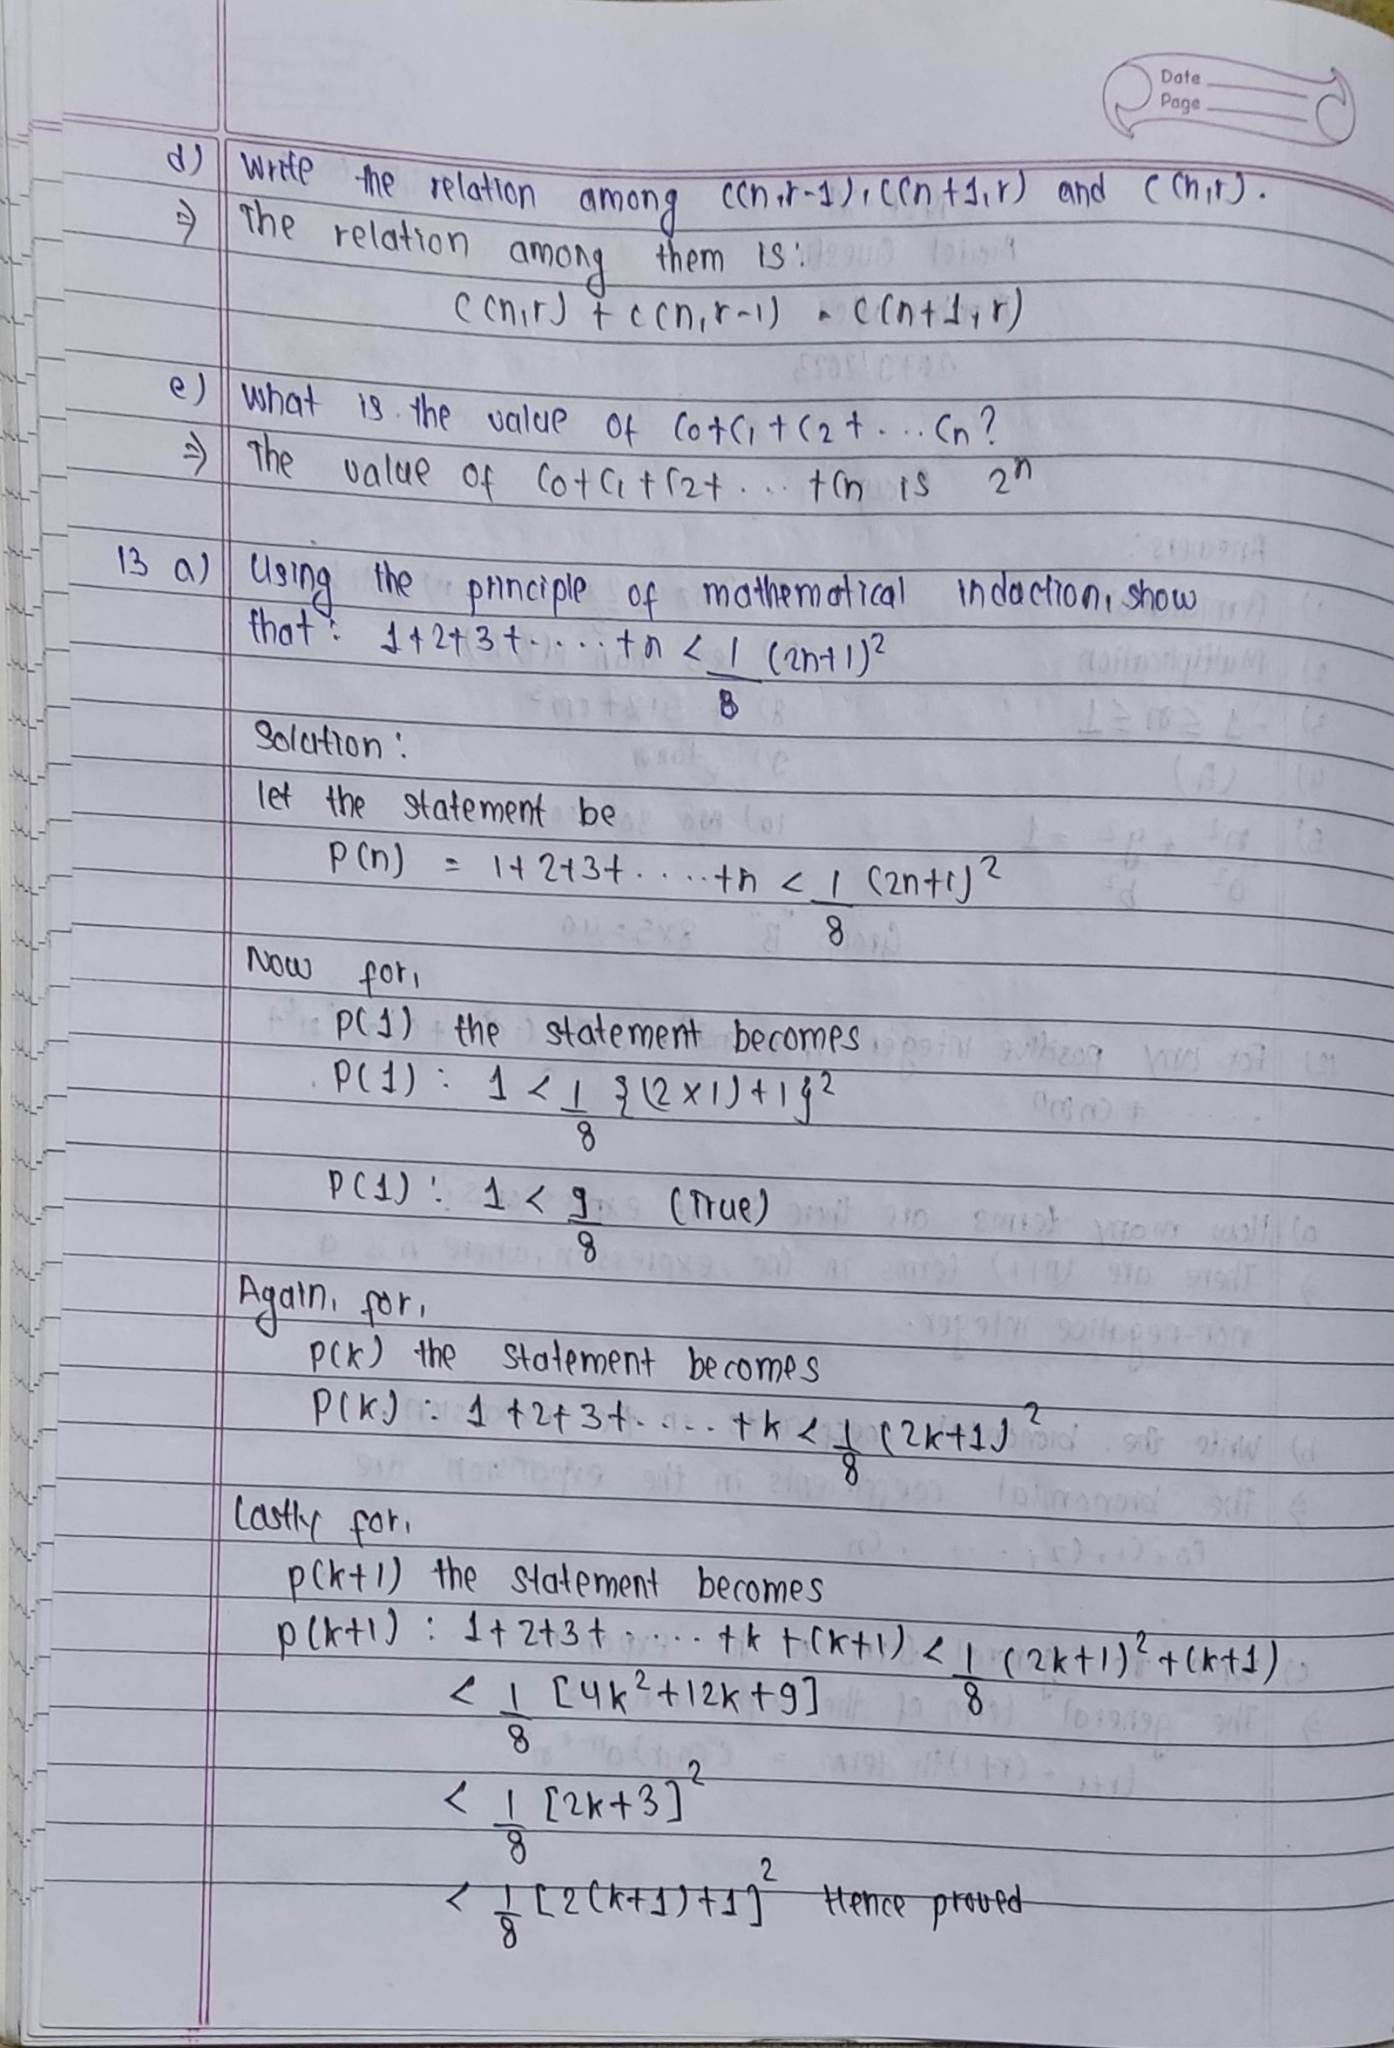 Date
Page
d) Write the relation among C(n,r-1), C(n+1,r) and C(n,r).
⇒ The relation among them is:
C(n,r) + C(n,r-1) = C(n+1,r)
e) What is the value of C0+C1+C2+...Cn?
⇒ The value of C0+C1+C2+... +Cn is 2ⁿ
13 a) Using the principle of mathematical induction, show
that: 1+2+3+.....+n < 1/8 (2n+1)²
Solution:
let the statement be
P(n) = 1+2+3+.....+n < 1/8 (2n+1)²
Now for,
P(1) the statement becomes
P(1): 1 < 1/8 {(2×1)+1}²
P(1): 1 < 9/8 (True)
Again, for,
P(k) the statement becomes
P(k): 1+2+3+.....+k < 1/8 (2k+1)²
Lastly for,
P(k+1) the statement becomes
P(k+1): 1+2+3+.....+k+(k+1) < 1/8 (2k+1)²+(k+1)
< 1/8 [4k²+12k+9]
< 1/8 [2k+3]²
< 1/8 [2(k+1)+1]² Hence proved